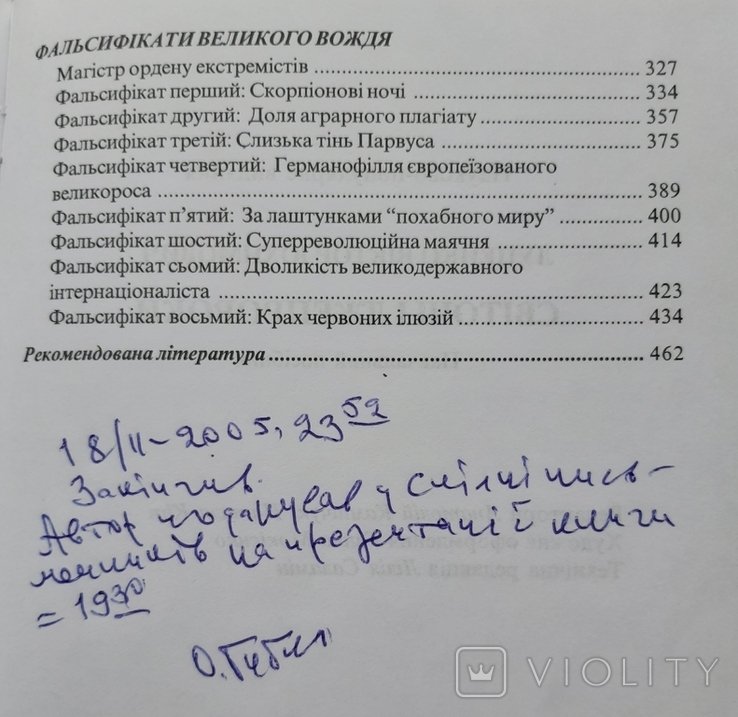 ФАЛЬСИФІКАТИ ВЕЛИКОГО ВОЖДЯ
Магістр ордену екстремістів ........ 327
Фальсифікат перший: Скорпіонові ночі ........ 334
Фальсифікат другий: Доля аграрного плагіату ........ 357
Фальсифікат третій: Слизька тінь Парвуса ........ 375
Фальсифікат четвертий: Германофілля європеїзованого
великороса ........ 389
Фальсифікат п’ятий: За лаштунками “похабного миру” ........ 400
Фальсифікат шостий: Суперреволюційна маячня ........ 414
Фальсифікат сьомий: Дволикість великодержавного
інтернаціоналіста ........ 423
Фальсифікат восьмий: Крах червоних ілюзій ........ 434
Рекомендована література ........ 462
18/II-2005, 23 52
Закінчив.
Автор подарував у Спілці пись-
менників на презентації книги
= 19 30
VIOLITY